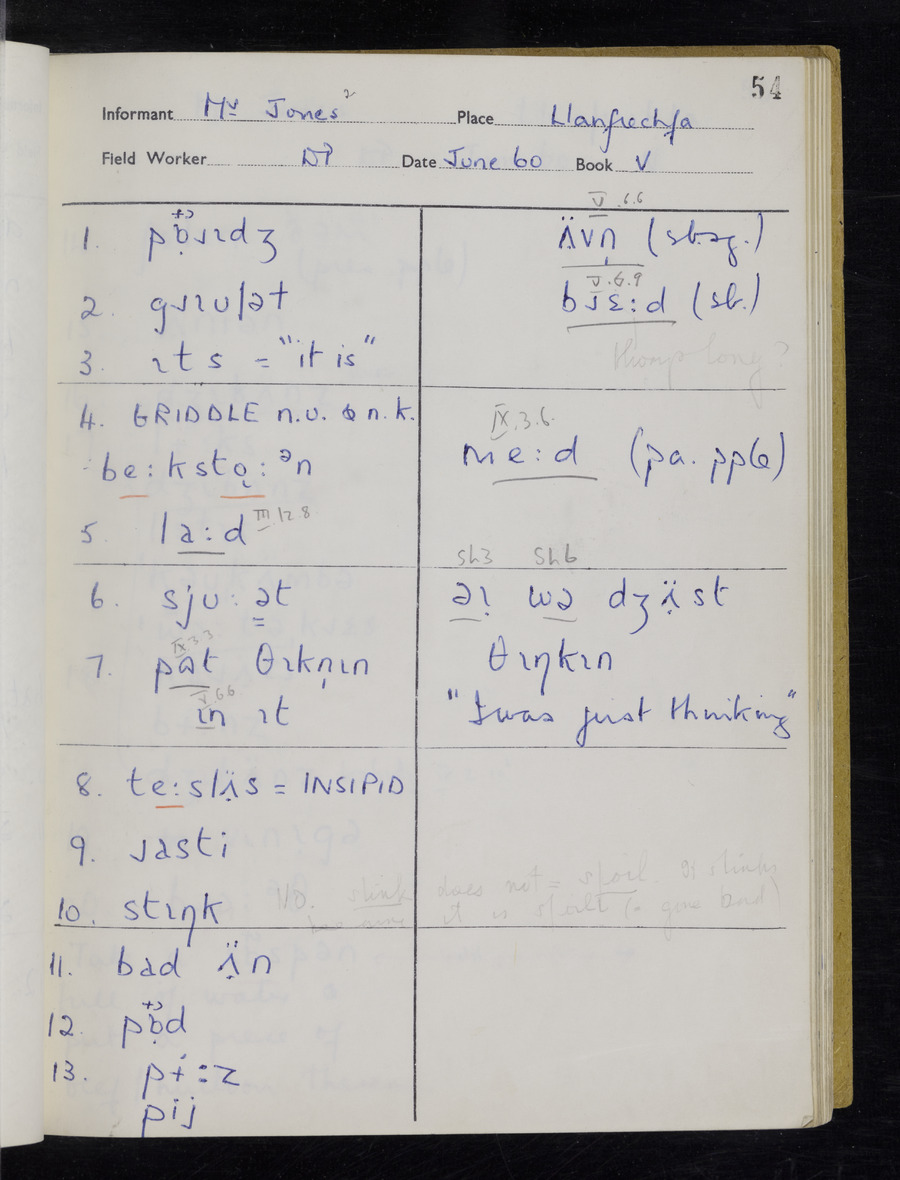 54
Informant Mr Jones² Place Llanfrechfa
Field Worker DP Date June 60 Book V
1. pɒ̣̈ɹɪdʒ
2. gɹɪʊlət
3. ɪts = "it is"
4. GRIDDLE n.u. & n.k.
be:kstọ:ᵊn
5. la:d III.12.8
6. sjʊ:ət
7. pat θɪkn̩ɪn
IX.3.3
V.6.6
ɪn ɪt
8. te:slʌ̣̈s = INSIPID
9. ɹasti
10. stɪŋk
11. bad ʌ̣̈n
12. pɒ̣̈d
13. pɨ:z
pij
V.6.6
ʌ̈vn̩ (sbsg.)
V.6.9
bɹɛ:d (sb.)
long?
IX.3.6.
me:d (pa. pple)
SH3 SH6
əɪ̣ wə dʒʌ̣̈st
θɪŋkɪn
"I was just thinking"
NO. stink does not = spoil. It stinks
it is spoilt (= gone bad)